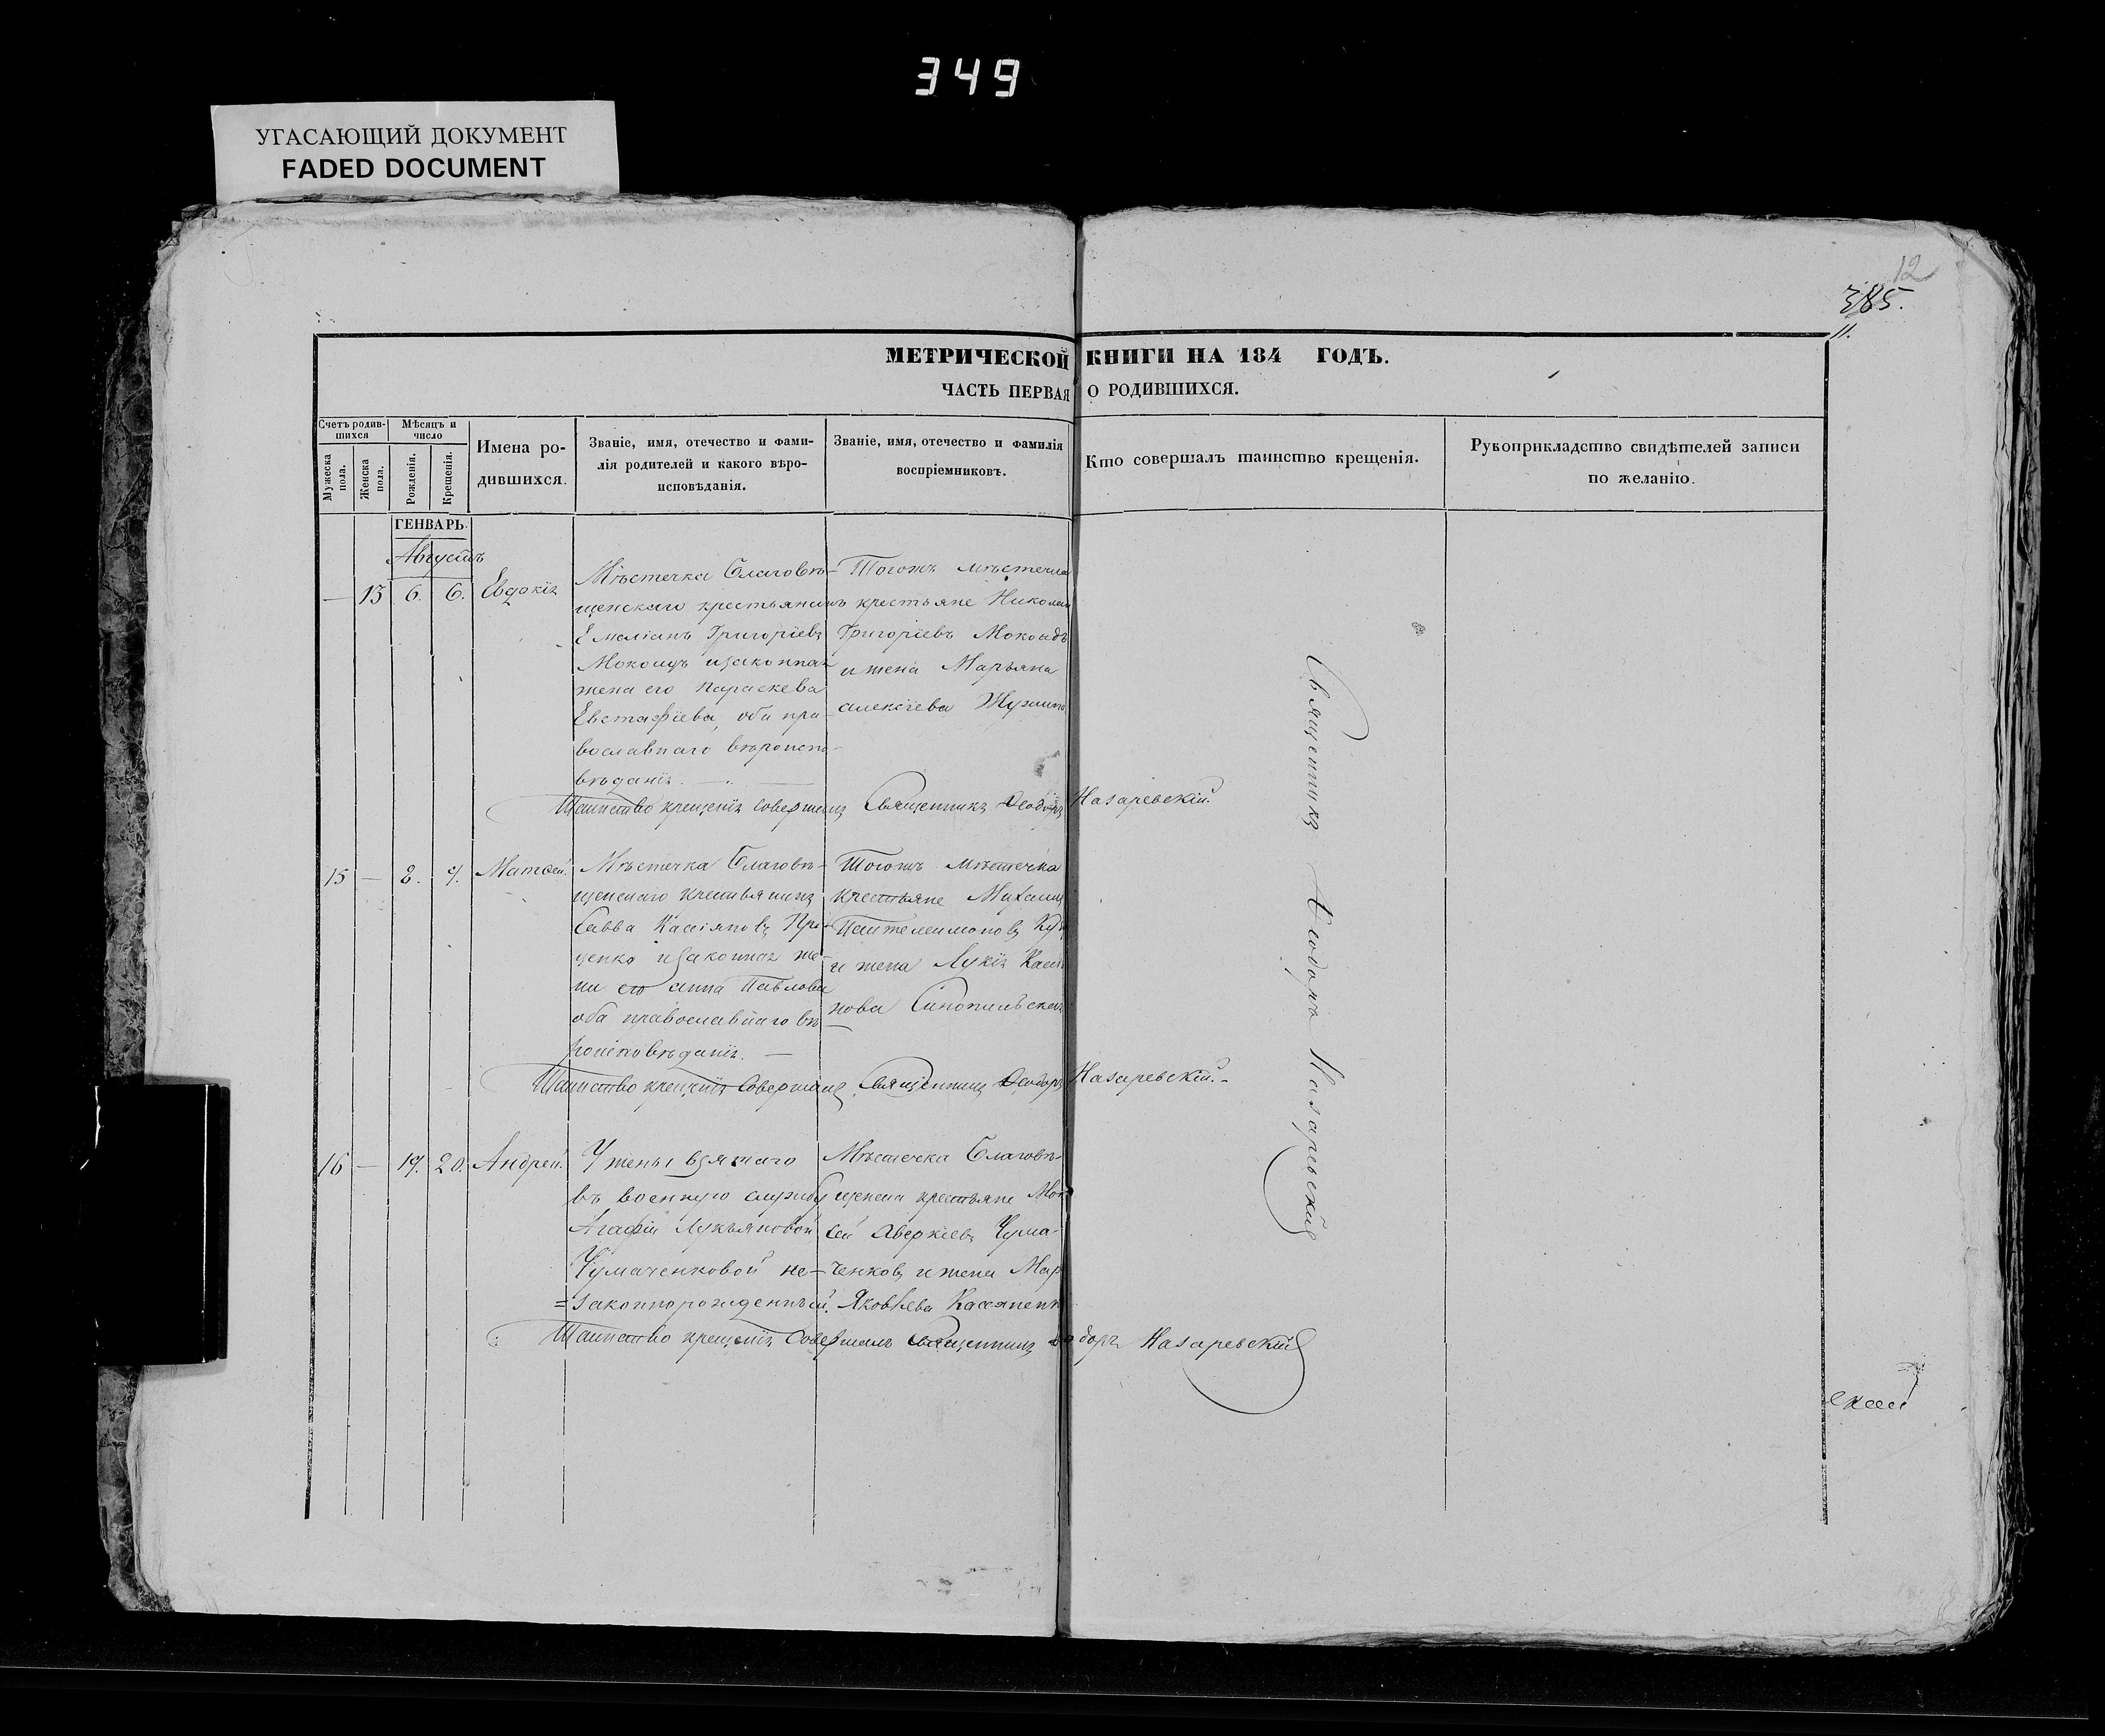 349
УГАСАЮЩИЙ ДОКУМЕНТ
FADED DOCUMENT
12
385.
11.
МЕТРИЧЕСКОЙ КНИГИ НА 184 ГОДЪ.
ЧАСТЬ ПЕРВАЯ О РОДИВШИХСЯ.
Счетъ родив-
шихся
Мужеска
пола.
Женска
пола.
Мѣсяцъ и
число
Рожденія.
Крещенія.
Имена ро-
дившихся.
Званіе, имя, отечество и фами-
лія родителей и какого вѣро-
исповѣданія.
Званіе, имя, отечество и фамилія
воспріемниковъ.
Кто совершалъ таинство крещенія.
Рукоприкладство свидѣтелей записи
по желанію.
ГЕНВАРЬ.
Августъ
— 13 6. 6. Евдокія
Мѣстечка Благовѣ-
щенскаго крестьянинъ
Емаліанъ Григоріевъ
Мокоидъ и законная
жена его Параскева
Евстафіева, оба пра-
вославнаго вѣроиспо-
вѣданія. —
Тогожъ мѣстечка
крестьяне Николай
Григоріевъ Мокоидъ
и жена Марьяна
Алексіева
Таинство крещенія совершилъ Священникъ Ѳеодоръ Назаревскій.
15 — 8. 9. Матѳей.
Мѣстечка Благовѣ-
щенскаго крестьянинъ
Савва Касіяновъ Про-
ценко и законная же-
на его Анна Павлова
оба православнаго вѣ-
роисповѣданія. —
Тогожъ мѣстечка
крестьяне Михаилъ
Пантелеимоновъ
и жена Лукія Касія-
нова
Таинство крещенія совершилъ Священникъ Ѳеодоръ Назаревскій. -
16 — 19. 20. Андрей.
У жены взятаго
въ военную службу
Агафіи Лукьяновой
Чумаченковой не-
=законнорожденный.
Мѣстечка Благовѣ-
щенска крестьяне Мои-
сей Аверкіевъ Чума-
ченковъ и жена
Яковлева
Таинство крещенія совершилъ Священникъ Ѳеодоръ Назаревскій
Священникъ Ѳеодоръ Назаревскій